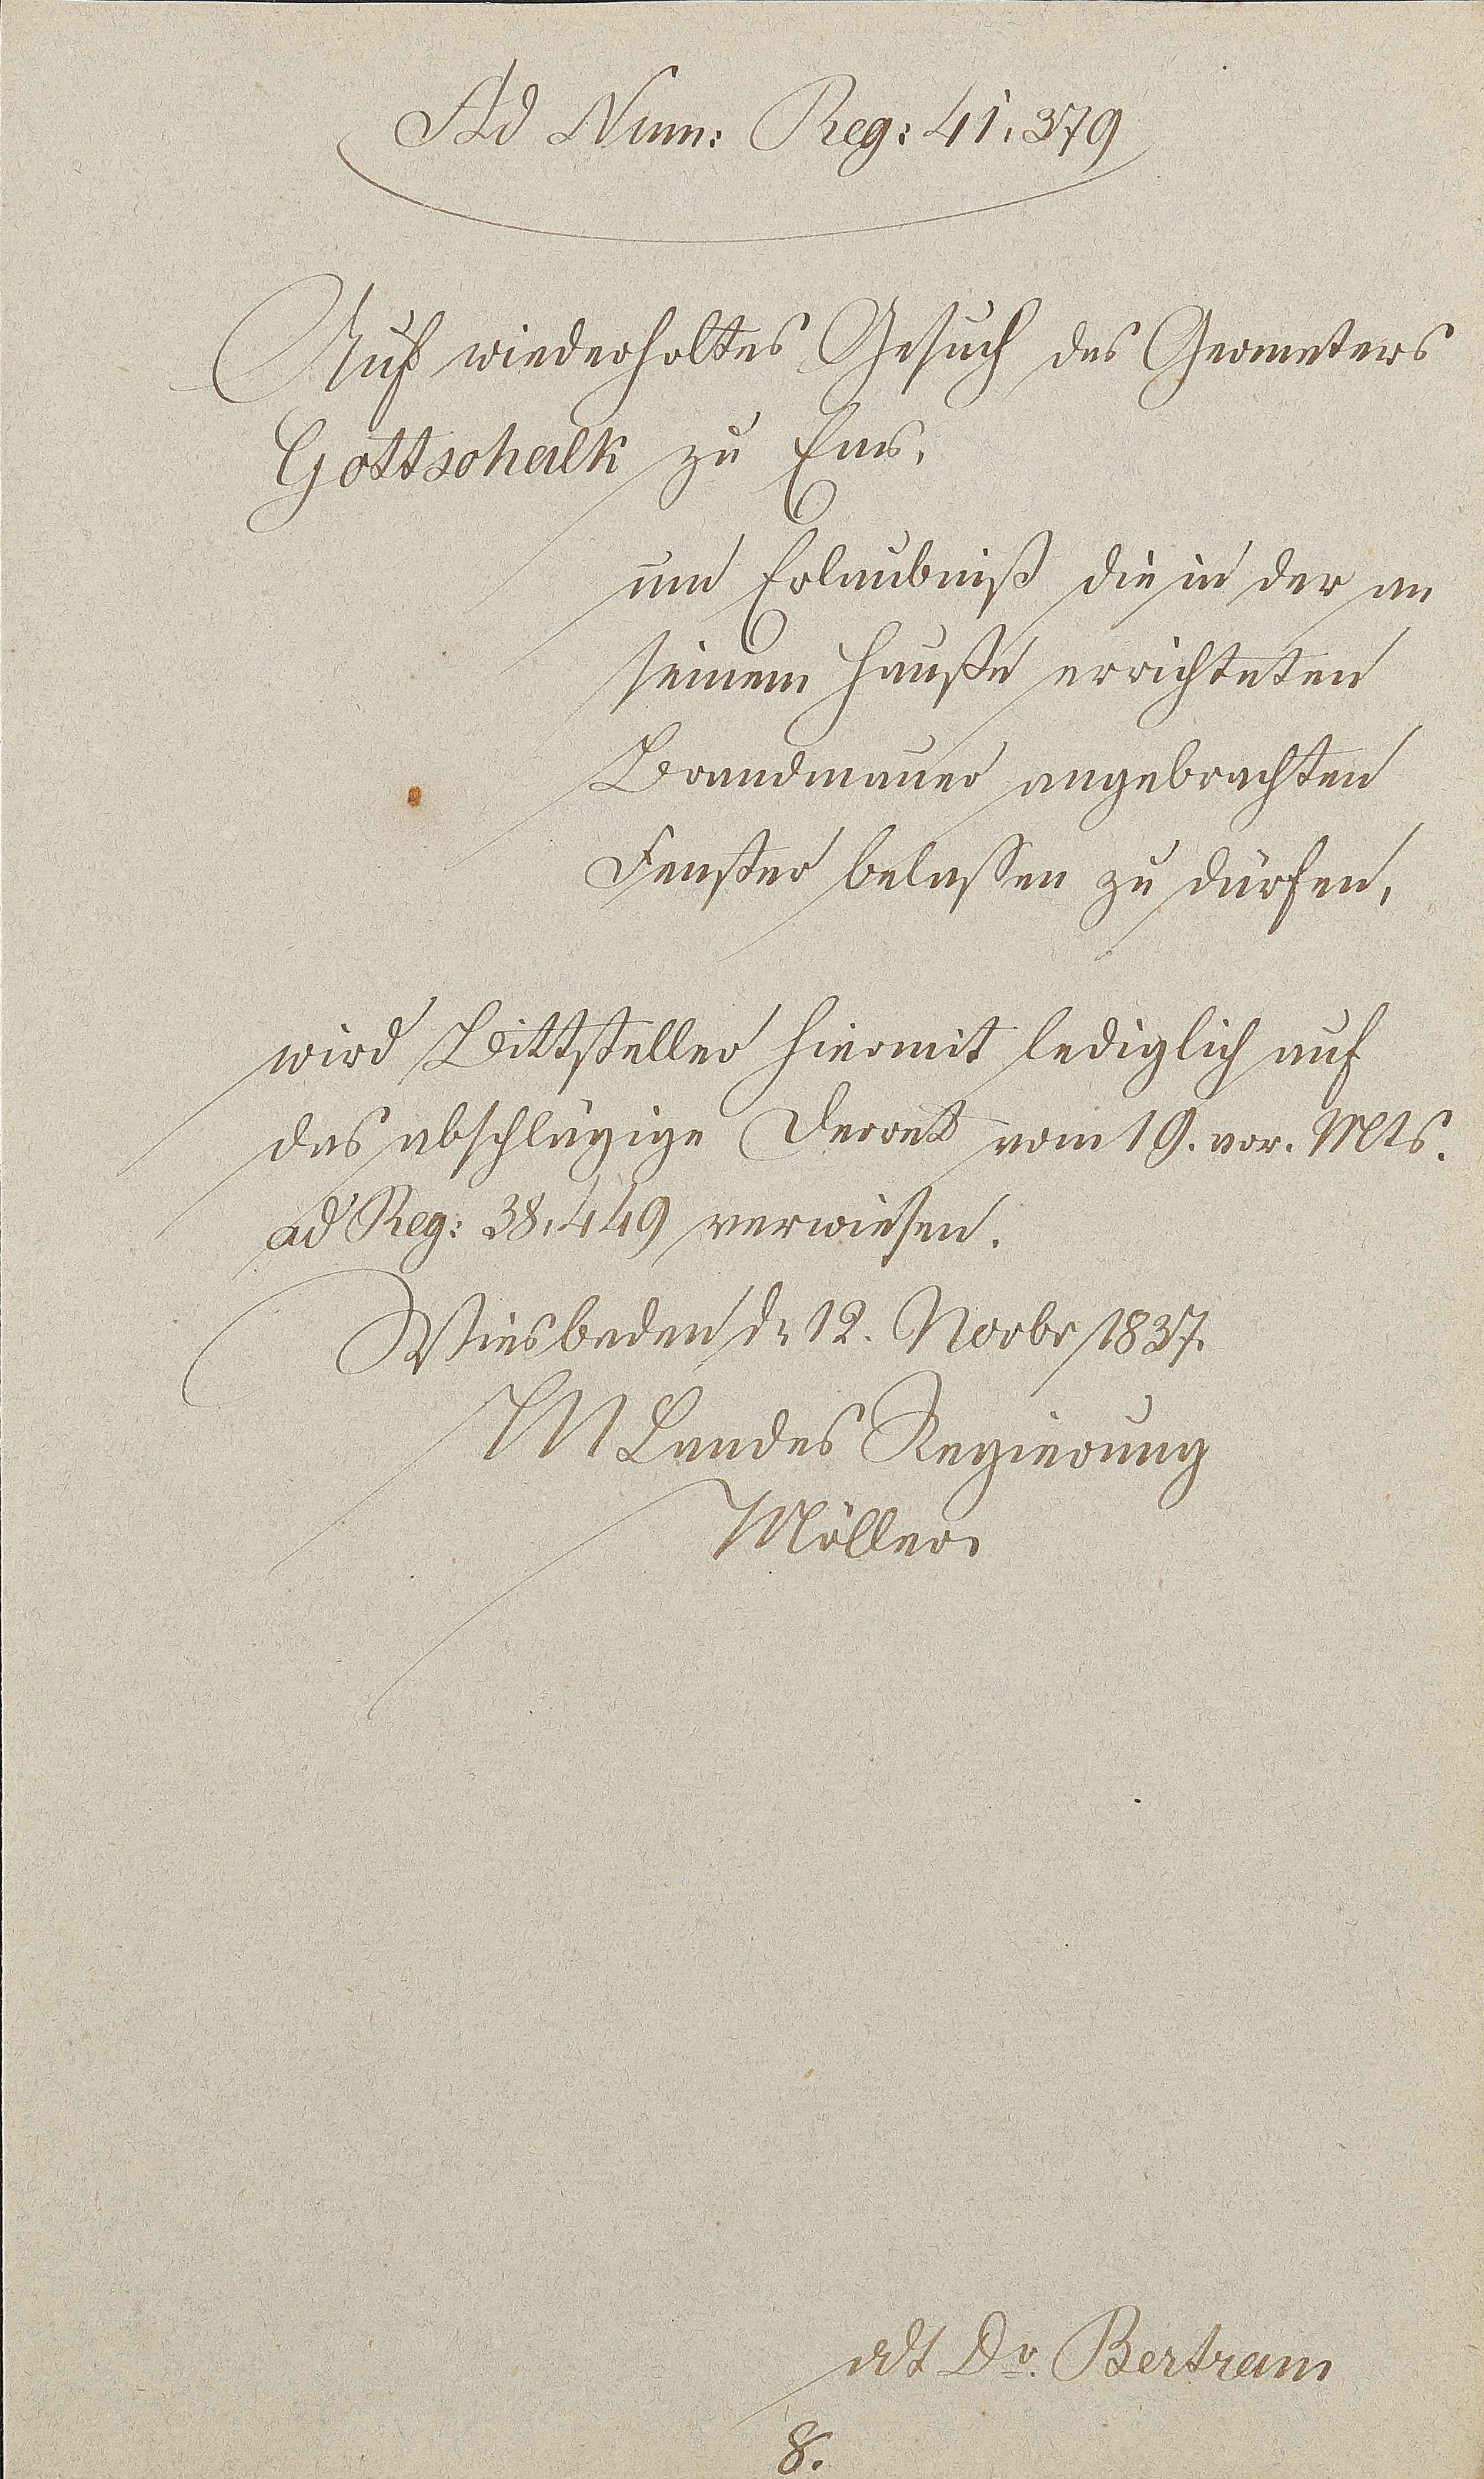 Ad Num: Reg: 41,379
Auf wiederholtes Gesuch des Geometers
Gottschalk zu Ems,
um Erlaubniß die in der an
seinem Hauße errichteten
Brandmauer angebrachten
Fenster belassen zu dürfen,
wird Bittsteller hiermit lediglich auf
das abschlägige Decret vom 19. vor. Mts.
ad Reg: 38,449 verwiesen.
Wiesbaden d. 12. Novbr 1837.
HN Landes Regierung
Möller.
vdt Dr. Bertram
8.